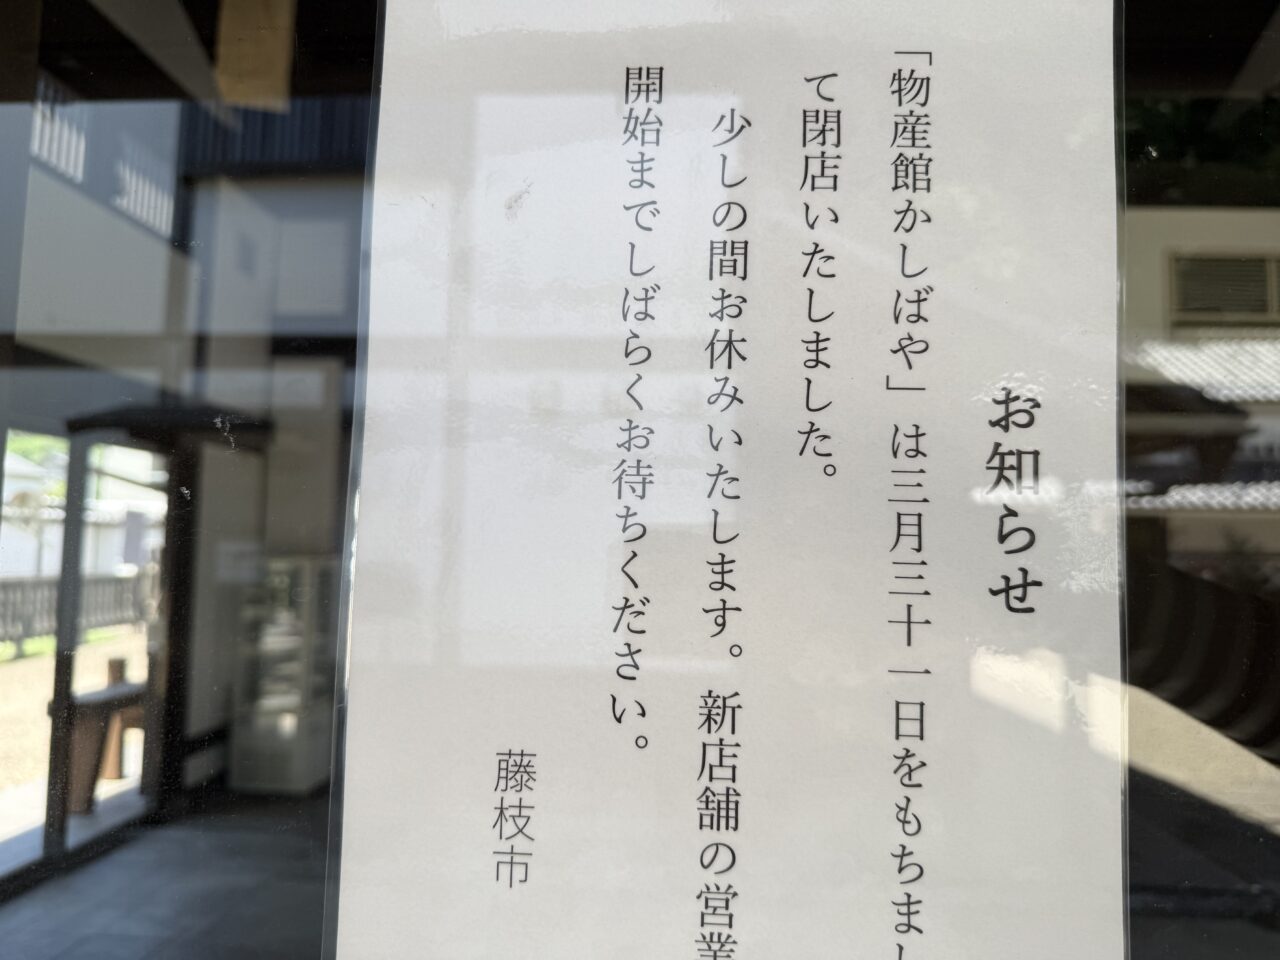 お知らせ
「物産館かしばや」は三月三十一日をもちまし
て閉店いたしました。
少しの間お休みいたします。新店舗の営業
開始までしばらくお待ちください。
藤枝市